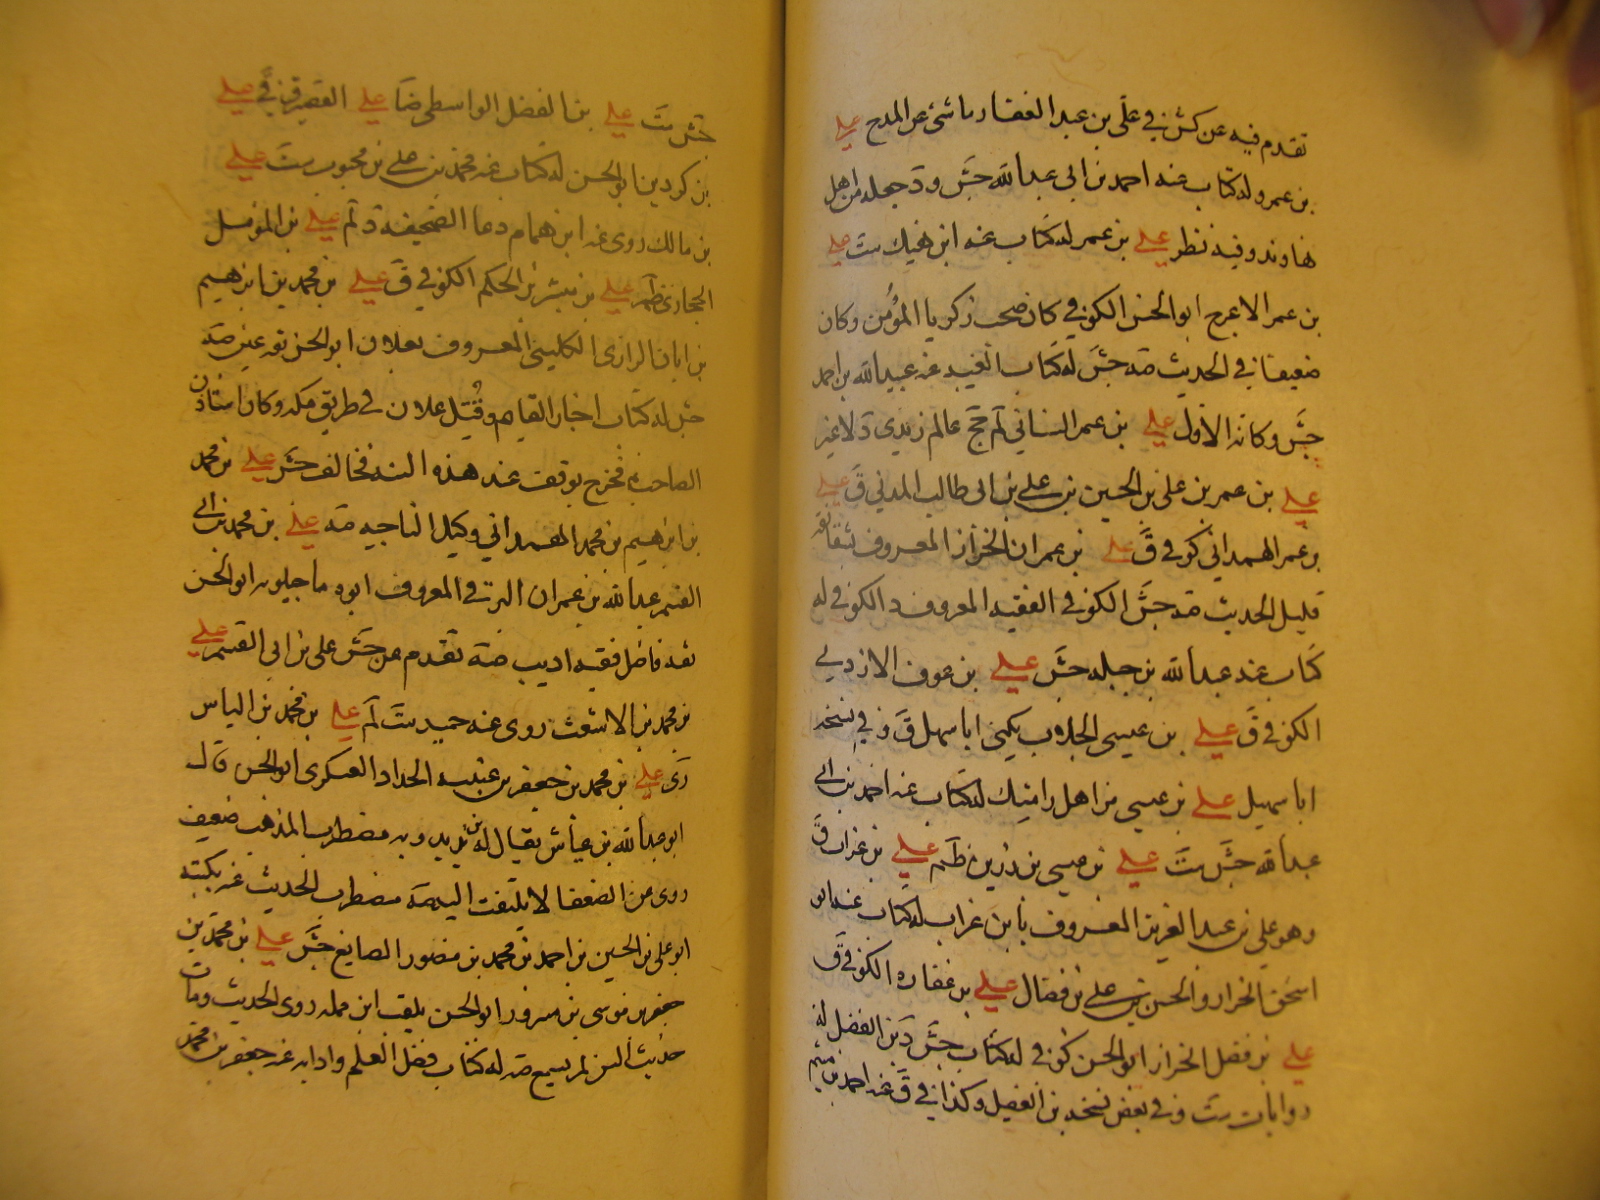 تقدم فيه عن كش في علي بن عبد الغفار ما شئ عن المدح علي
بن عمرو له كتاب عنه احمد بن ابي عبدالله جش و د جعله من اهل
نهاوند وفيه نظر علي بن عمر له كتاب عنه ابن نهيك ست علي
بن عمر الاعرج ابو الحسن الكوفي كان صحب زكريا المؤمن وكان
ضعيفا في الحديث صه جش له كتاب الغيبه عنه عبيدالله بن احمد
جش وكانه الاول علي بن عمر السناني لم جج عالم زيدي د لا غير
علي بن عمر بن علي بن الحسين بن علي بن ابي طالب المدني ق علي
بن عمر الهمداني كوفي ق علي بن عمران الخزاز المعروف بشفا ثقه
قليل الحديث صه جش الكوفي الفقيه المعروف د الكوفي له
كتاب عنه عبدالله بن جبله جش علي بن عوف الازدي
الكوفي ق علي بن عيسى الجلاب يكنى ابا سهل ق و في نسخه
ابا سهيل علي بن عيسى من اهل رامشك له كتاب عنه احمد بن ابي
عبدالله جش ست علي بن عيسى بن رزين ظم علي بن غراب ق
وهو علي بن عبد العزيز المعروف بابن غراب له كتاب عنه ابو
اسحق الخزاز والحسن بن علي بن فضال علي بن غفاره الكوفي ق
علي بن فضل الخزاز ابو الحسن كوفي له كتاب جش د بن الفضل له
روايات ست و في بعض نسخه بن الفضيل وكذا في ق عنه احمد بن ميثم
جش ست علي بن الفضل الواسطي ضا علي القصير ق في علي
بن كردين ابو الحسن له كتاب عنه محمد بن علي بن محبوب ست علي
بن مالك روى عنه ابن همام دعا الصحيفه د لم علي بن المؤمل
الحجازي ظم علي بن ميشر بن الحكم الكوفي ق علي بن محمد بن ابرهيم
بن ابان الرازي الكليني المعروف بعلان ابو الحسن ثقه عين صه
جش له كتاب اخبار القايم وقتل علان في طريق مكه وكان استاذن
الصاحب فخرج توقف عنه هذه السنه فخالف جش علي بن محمد
بن ابرهيم بن محمد الهمداني وكيل الناحيه صه علي بن محمد بن ابي
القسم عبدالله بن عمران البرقي المعروف ابوه ماجيلويه ابو الحسن
ثقه فاضل فقيه اديب صه تقدم عن جش علي بن ابي القسم علي
بن محمد بن الاشعث روى عنه حميد ست لم علي بن محمد بن الياس
دى علي بن محمد بن جعفر بن عنبسه الحداد العسكري ابو الحسن قال
ابو عبدالله بن عياش يقال له بن ريدويه مضطرب المذهب ضعيف
روى عن الضعفا لا يلتفت اليه صه مضطرب الحديث عنه بكتبه
ابو علي بن الحسين بن احمد بن محمد بن منصور الصايغ جش علي بن محمد بن
جعفر بن موسى بن مسرور ابو الحسن يلقب ابن مملة روى الحديث ومات
حديث السن لم يسمع منه له كتاب فضل العلم وادابه عنه جعفر بن محمد